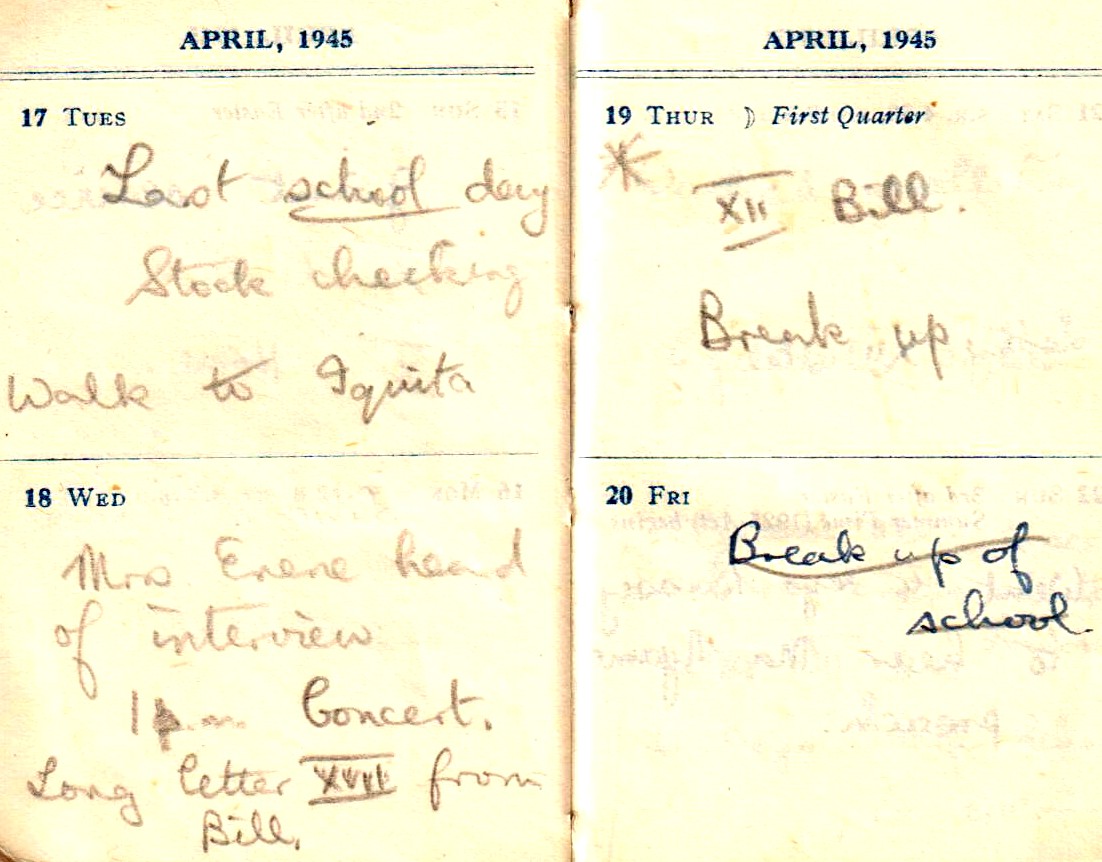 APRIL, 1945
17 TUES
Last school day
Stock checking
Walk to Iquita
18 WED
Mrs heard
of interview
1 p.m. Concert.
Long letter XVII from
Bill.
APRIL, 1945
19 THUR ☽ First Quarter
XII Bill.
Break up
20 FRI
Break up of
school.